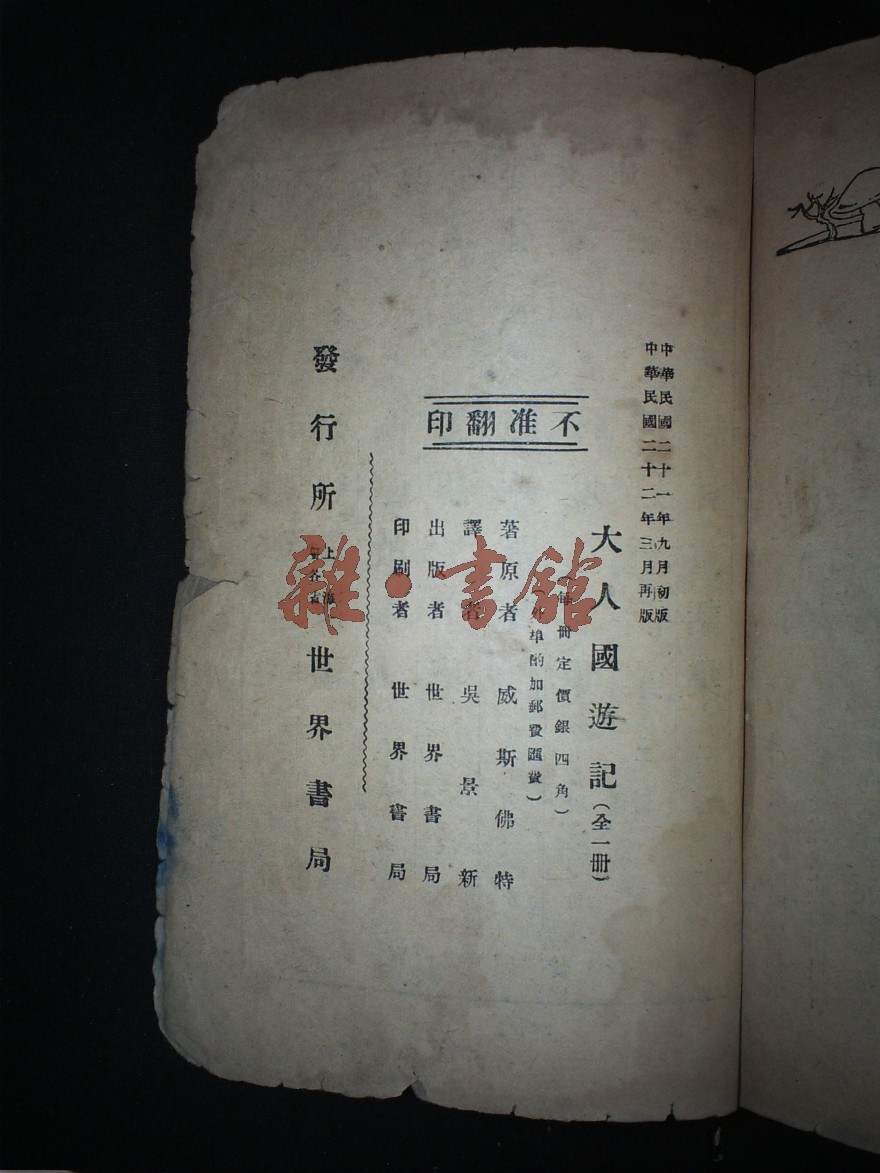 中華民國二十一年九月初版
中華民國二十二年三月再版
大人國遊記（全一冊）
（每冊定價銀四角）
埠酌加郵費匯費）
不准翻印
著原者 威斯佛特
譯者 吳景新
出版者 世界書局
印刷者 世界書局
發行所 上海 各省 世界書局
雜·書館